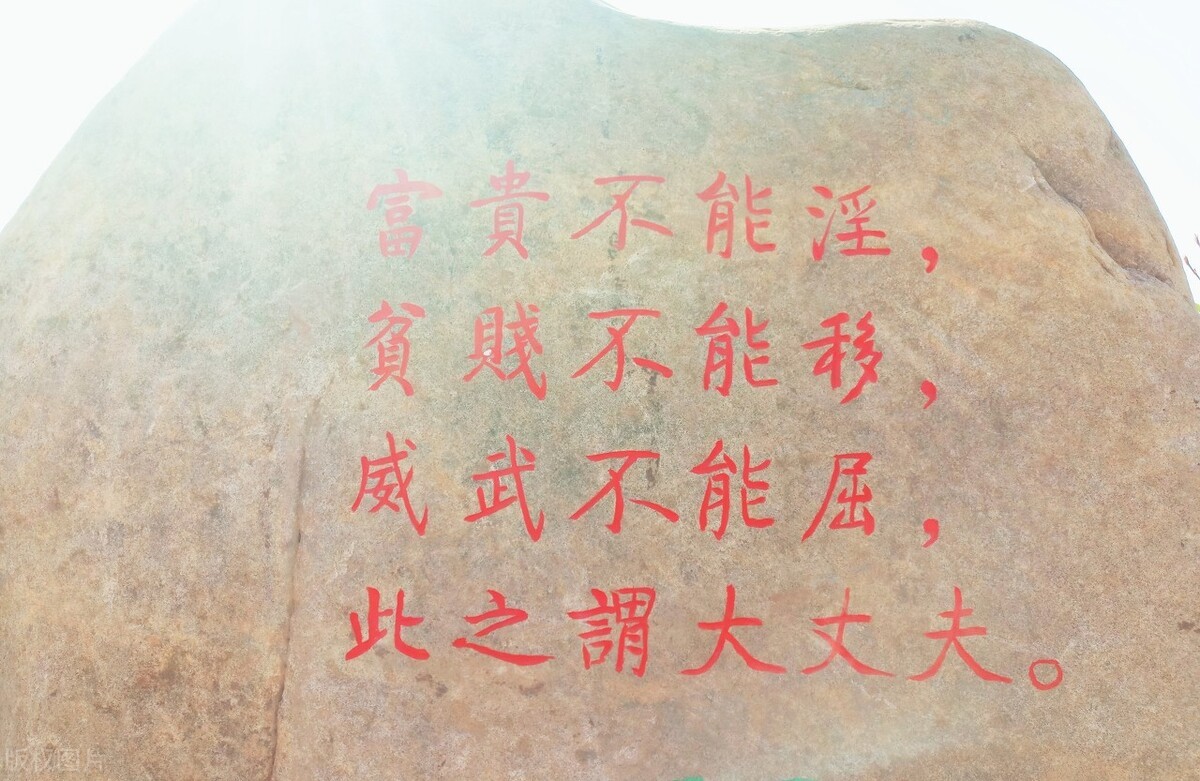 富貴不能淫，
貧賤不能移，
威武不能屈，
此之謂大丈夫。
版权图片